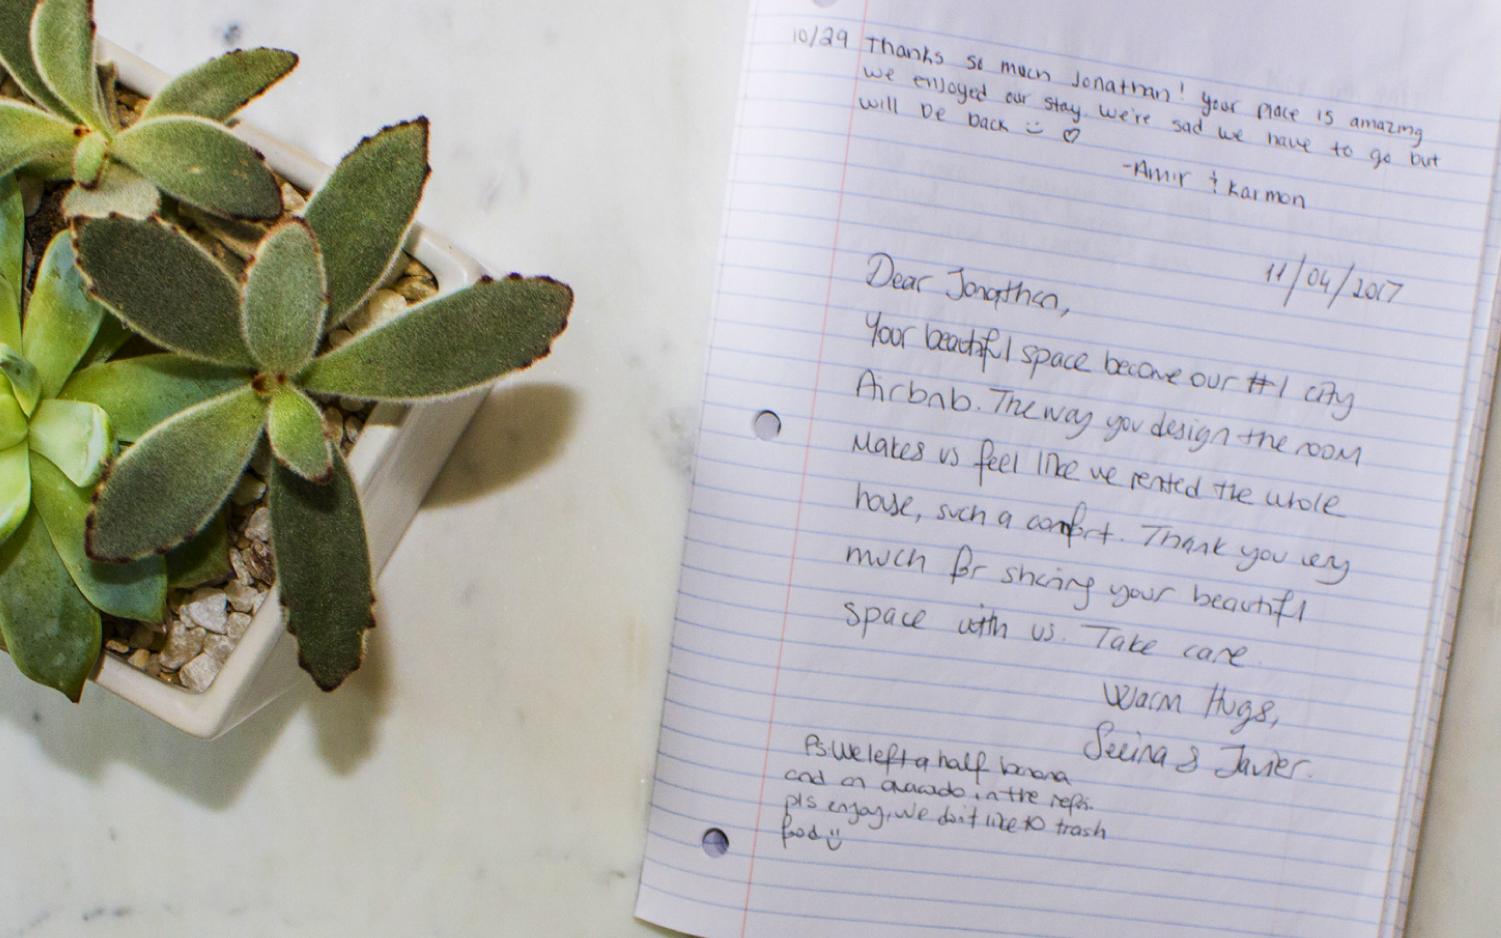 10/29 Thanks so much Jonathan! your place is amazing
we enjoyed our stay. we're sad we have to go but
will be back :) ♡
-Amir & Karmon
11/04/2017
Dear Jonathan,
Your beautiful space become our #1 city
Airbnb. The way you design the room
makes us feel like we rented the whole
house, such a comfort. Thank you very
much for sharing your beautiful
space with us. Take care.
Warm Hugs,
& Javier.
Ps. We left a half banana
and an avacado in the refri.
pls enjoy, we don't like to trash
food :)